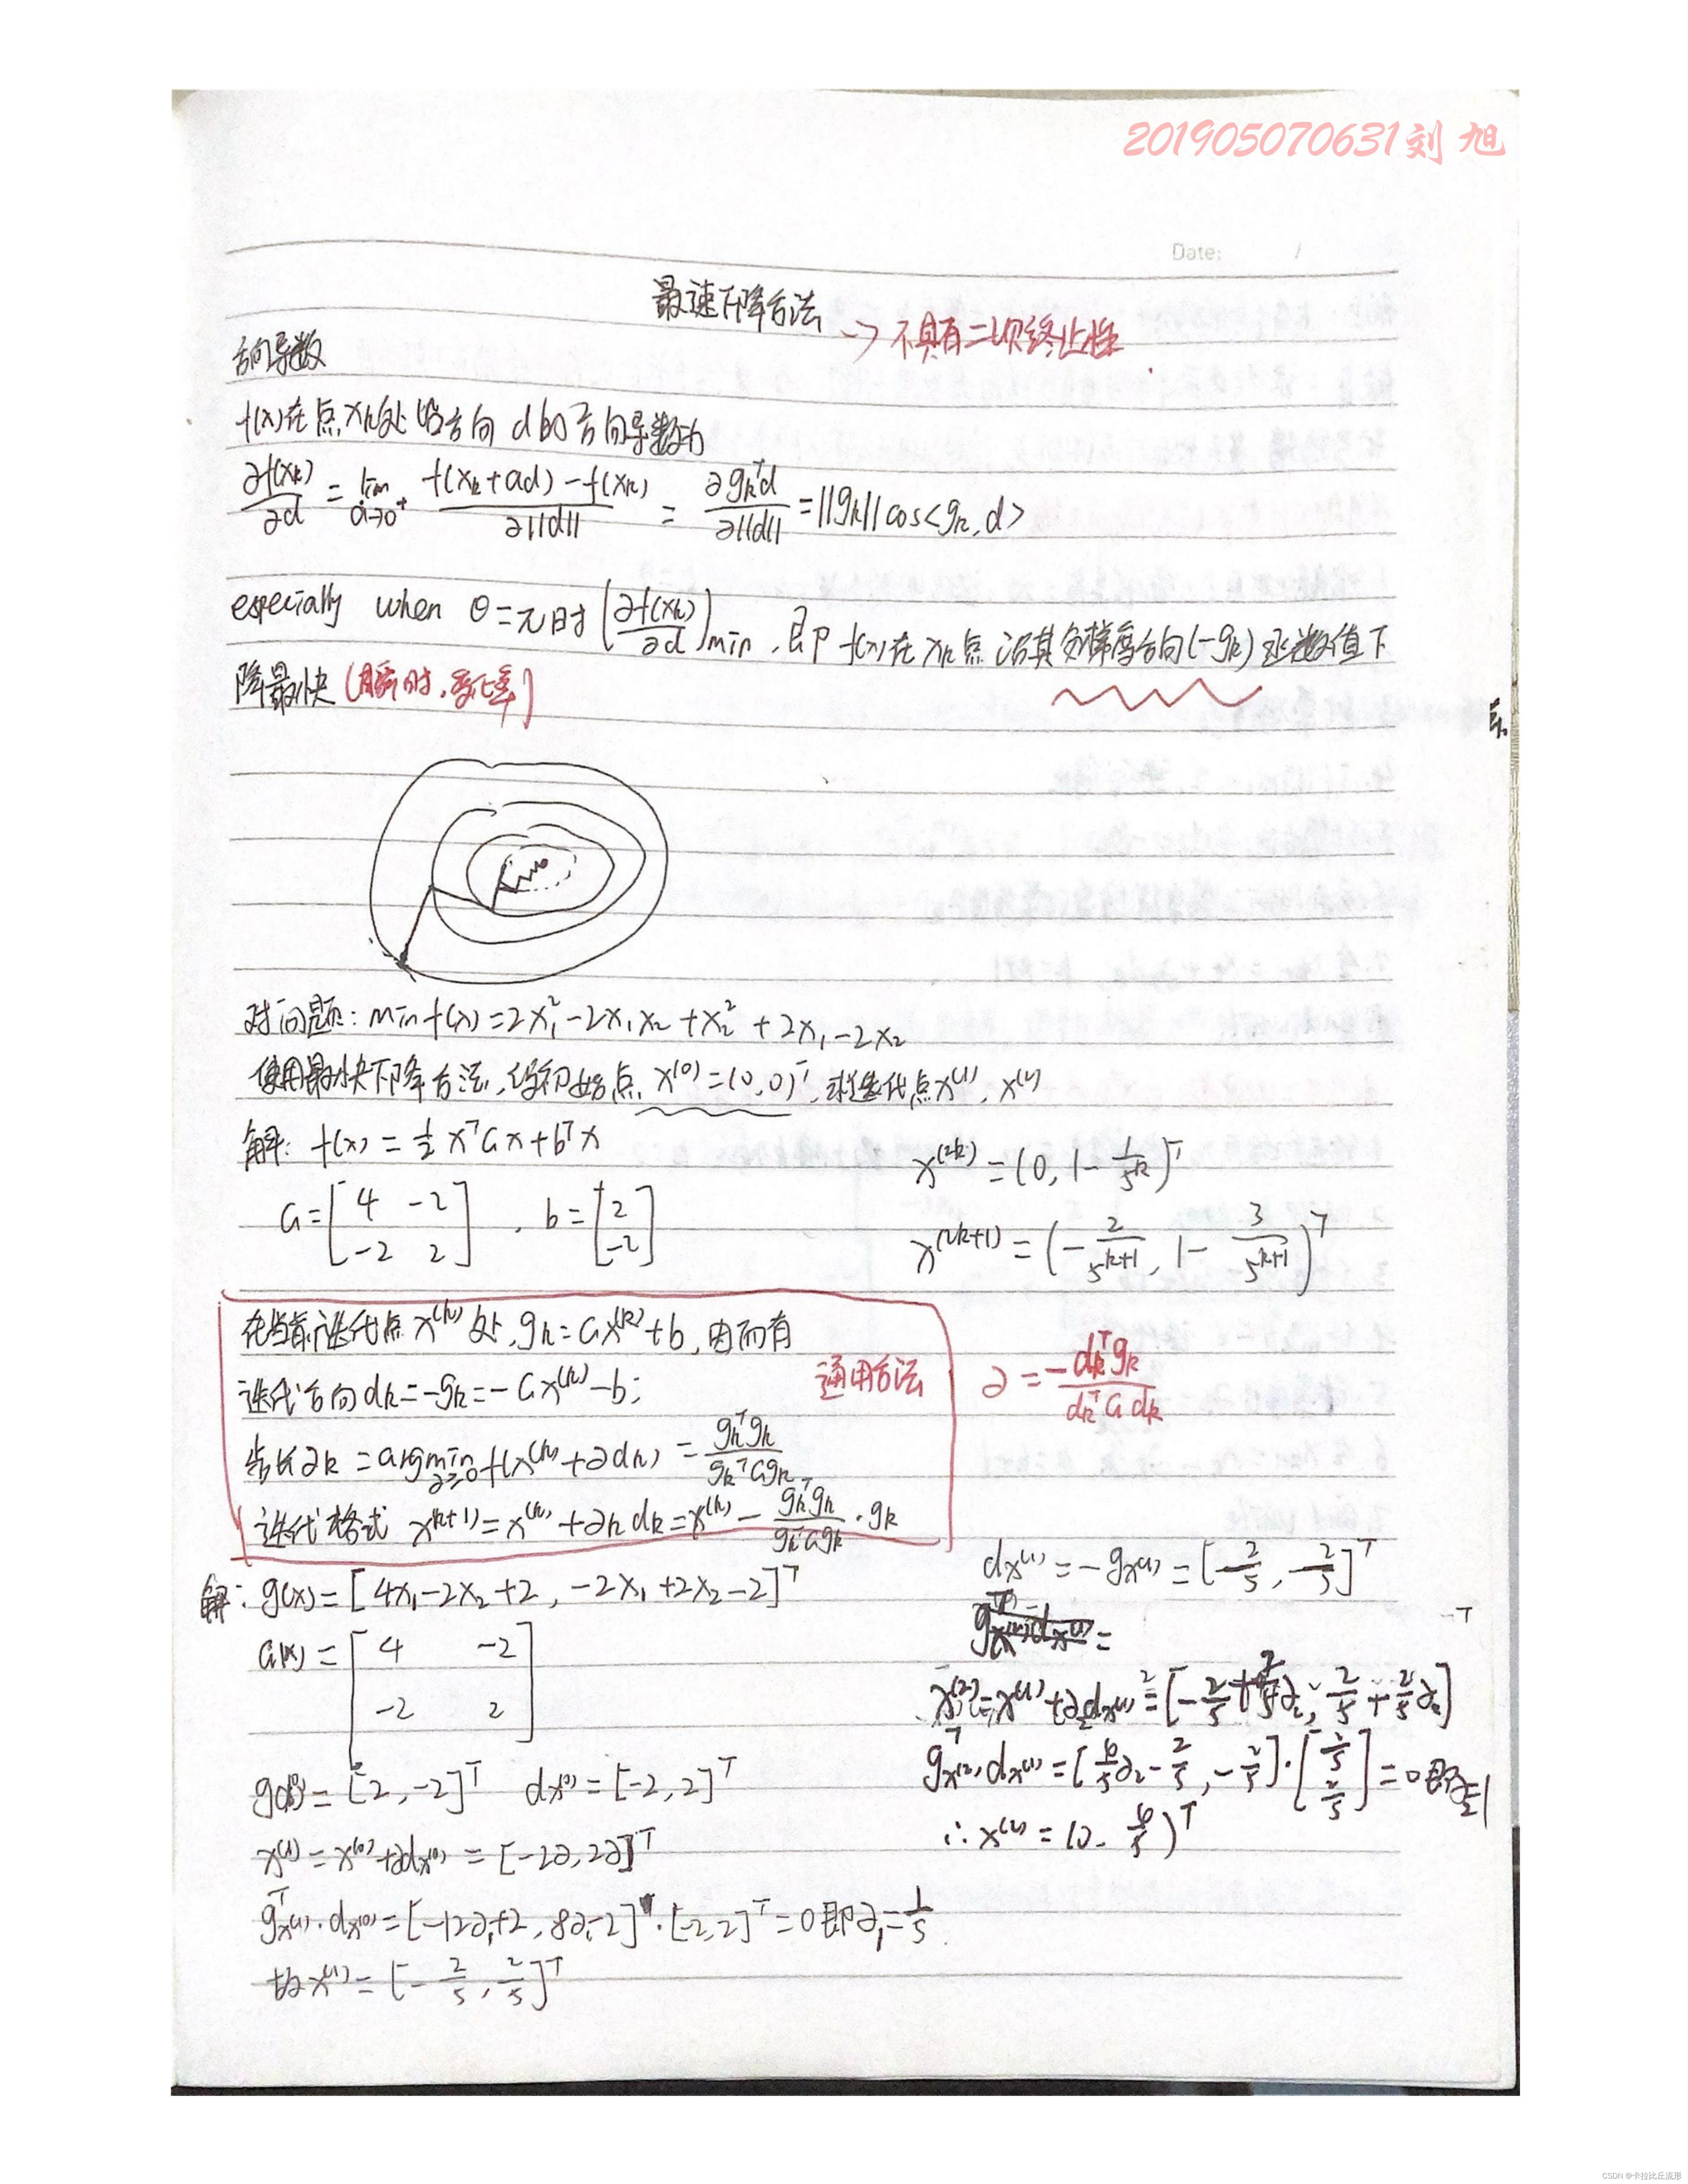 201905070631刘 旭
Date: /
最速下降方法 → 不具有二次终止性
方向导数
f(x)在点xk处沿方向 d的方向导数为
∂f(xk)/∂d = lim α→0⁺ (f(xk+αd)-f(xk))/(∂||d||) = (∂gkᵀd)/(∂||d||) = ||gk|| cos<gk, d>
especially when θ=π时 (∂f(xk)/∂d)min , 即 f(x)在xk点沿其负梯度方向(-gk)函数值下
降最快 (瞬时,变化率)
对问题: min f(x)=2x₁²-2x₁x₂+x₂²+2x₁-2x₂
使用最快下降方法,设初始点 x⁽⁰⁾=(0,0)ᵀ, 求迭代点x⁽¹⁾, x⁽²⁾
解: f(x) = ½ xᵀGx+bᵀx
G=[4 -2; -2 2] , b=[2; -2]
x⁽²ᵏ⁾=(0, 1-1/5ᵏ)ᵀ
x⁽²ᵏ⁺¹⁾=(-2/5ᵏ⁺¹, 1-3/5ᵏ⁺¹)ᵀ
在当前迭代点x⁽ᵏ⁾处, gk=Gx⁽ᵏ⁾+b, 因而有
迭代方向dk=-gk=-Gx⁽ᵏ⁾-b;
通用方法
步长∂k = argmin ∂≥0 f(x⁽ᵏ⁾+∂dk) = gkᵀgk/gkᵀGgk
迭代格式 x⁽ᵏ⁺¹⁾=x⁽ᵏ⁾+∂k dk=x⁽ᵏ⁾- gkᵀgk/gkᵀGgk · gk
∂ = -dkᵀgk/dkᵀG dk
解: g(x)=[4x₁-2x₂+2, -2x₁+2x₂-2]ᵀ
G(x)=[4 -2; -2 2]
gx⁽⁰⁾=[2,-2]ᵀ dx⁽⁰⁾=[-2,2]ᵀ
x⁽¹⁾=x⁽⁰⁾+∂dx⁽⁰⁾=[-2∂,2∂]ᵀ
gᵀx⁽¹⁾·dx⁽⁰⁾=[-12∂₁+2, 8∂₁-2]·[-2,2]ᵀ=0 即∂₁=1/5
故x⁽¹⁾=[-2/5, 2/5]ᵀ
dx⁽¹⁾=-gx⁽¹⁾=[2/5, 2/5]ᵀ
x⁽²⁾=x⁽¹⁾+∂₂dx⁽¹⁾=[-2/5+2/5∂₂, 2/5+2/5∂₂]ᵀ
gᵀx⁽²⁾dx⁽¹⁾=[4/5∂₂-2/5, -2/5]·[2/5; 2/5]=0 即∂₂=1
∴x⁽²⁾=(0, 4/5)ᵀ
CSDN @卡拉比丘流形